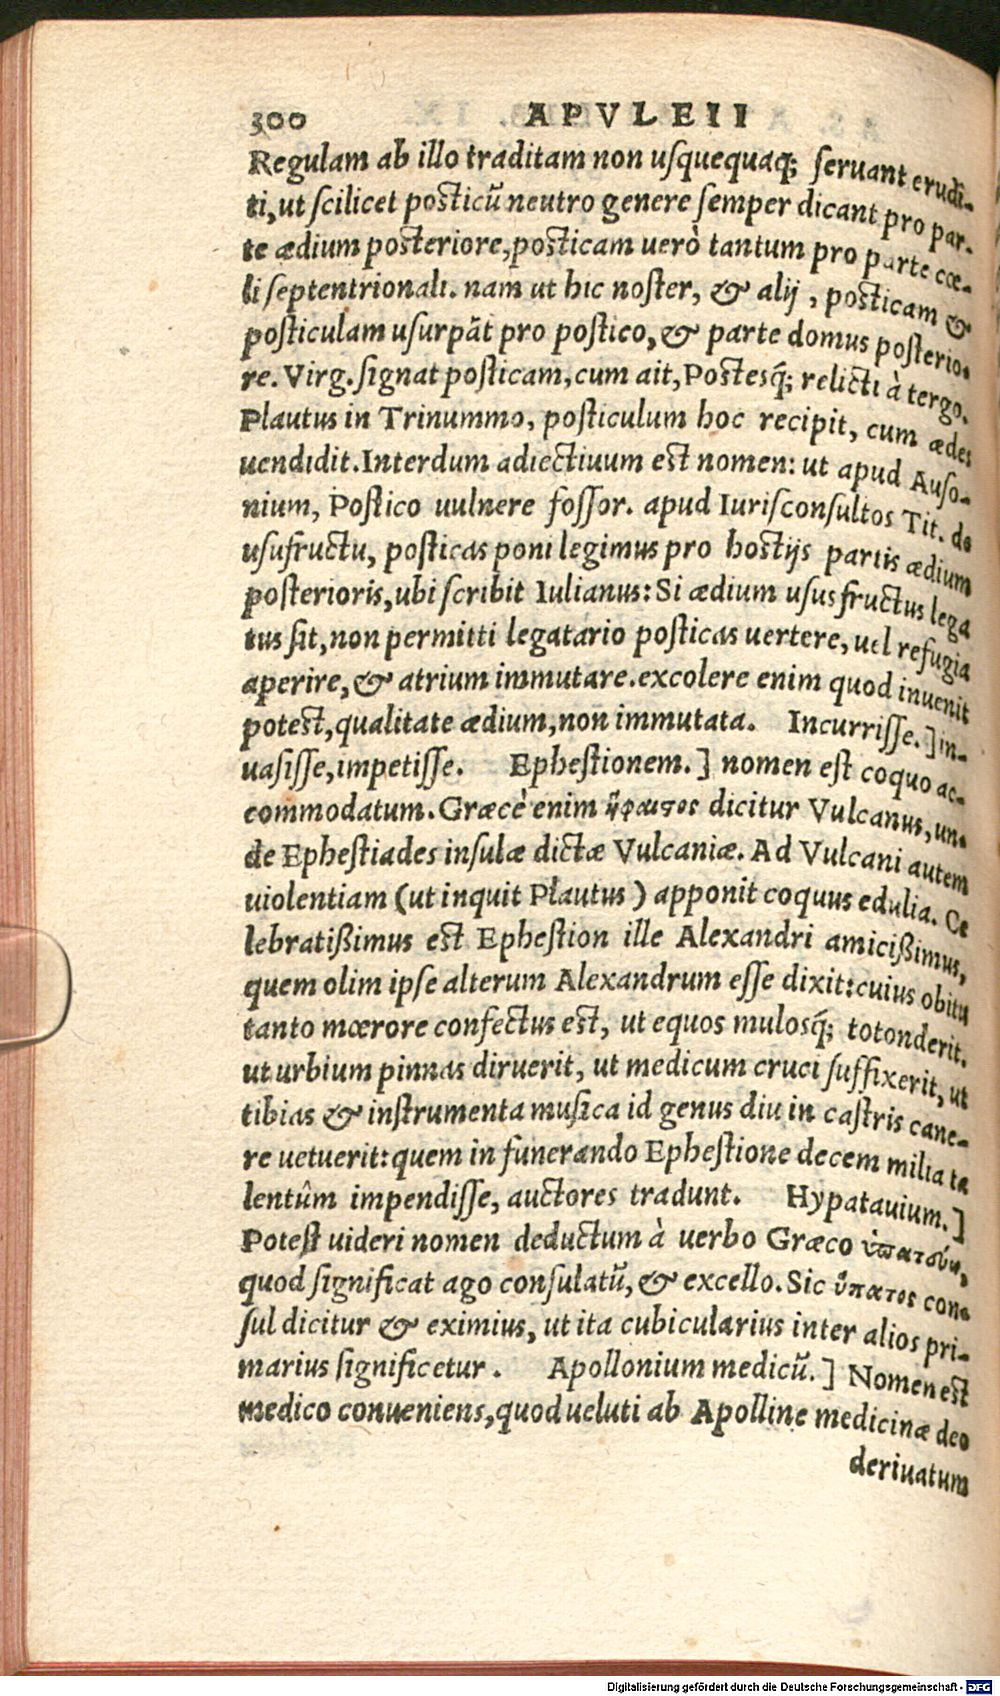 300 APVLEII
Regulam ab illo traditam non usquequaq; seruant erudi-
ti, ut scilicet posticũ neutro genere semper dicant pro par-
te ædium posteriore, posticam uerò tantum pro parte cœ-
li septentrionali. nam ut hic noster, & alij, posticam &
posticulam usurpãt pro postico, & parte domus posterio-
re. Virg. signat posticam, cum ait, Postesq́; relicti à tergo.
Plautus in Trinummo, posticulum hoc recipit, cum ædes
uendidit. Interdum adiectiuum est nomen: ut apud Auso-
nium, Postico uulnere fossor. apud Iurisconsultos Tit. de
usufructu, posticas poni legimus pro hostijs partis ædium
posterioris, ubi scribit Iulianus: Si ædium usus fructus lega
tus sit, non permitti legatario posticas uertere, uel refugia
aperire, & atrium immutare. excolere enim quod inuenit
potest, qualitate ædium, non immutata. Incurrisse.] in-
uasisse, impetisse. Ephestionem.] nomen est coquo ac-
commodatum. Græcè enim ἥφαιστος dicitur Vulcanus, un-
de Ephestiades insulæ dictæ Vulcaniæ. Ad Vulcani autem
uiolentiam (ut inquit Plautus) apponit coquus edulia. Ce
lebratißimus est Ephestion ille Alexandri amicißimus,
quem olim ipse alterum Alexandrum esse dixit: cuius obitu
tanto mœrore confectus est, ut equos mulosq́; totonderit,
ut urbium pinnas diruerit, ut medicum cruci suffixerit, ut
tibias & instrumenta musica id genus diu in castris cane-
re uetuerit: quem in funerando Ephestione decem milia ta
lentûm impendisse, auctores tradunt. Hypatauium.]
Potest uideri nomen deductum à uerbo Græco ὑπατεύω,
quod significat ago consulatũ, & excello. Sic ὕπατος con-
sul dicitur & eximius, ut ita cubicularius inter alios pri-
marius significetur. Apollonium medicũ.] Nomen est
medico conueniens, quod ueluti ab Apolline medicinæ deo
deriuatum
Digitalisierung gefördert durch die Deutsche Forschungsgemeinschaft - DFG